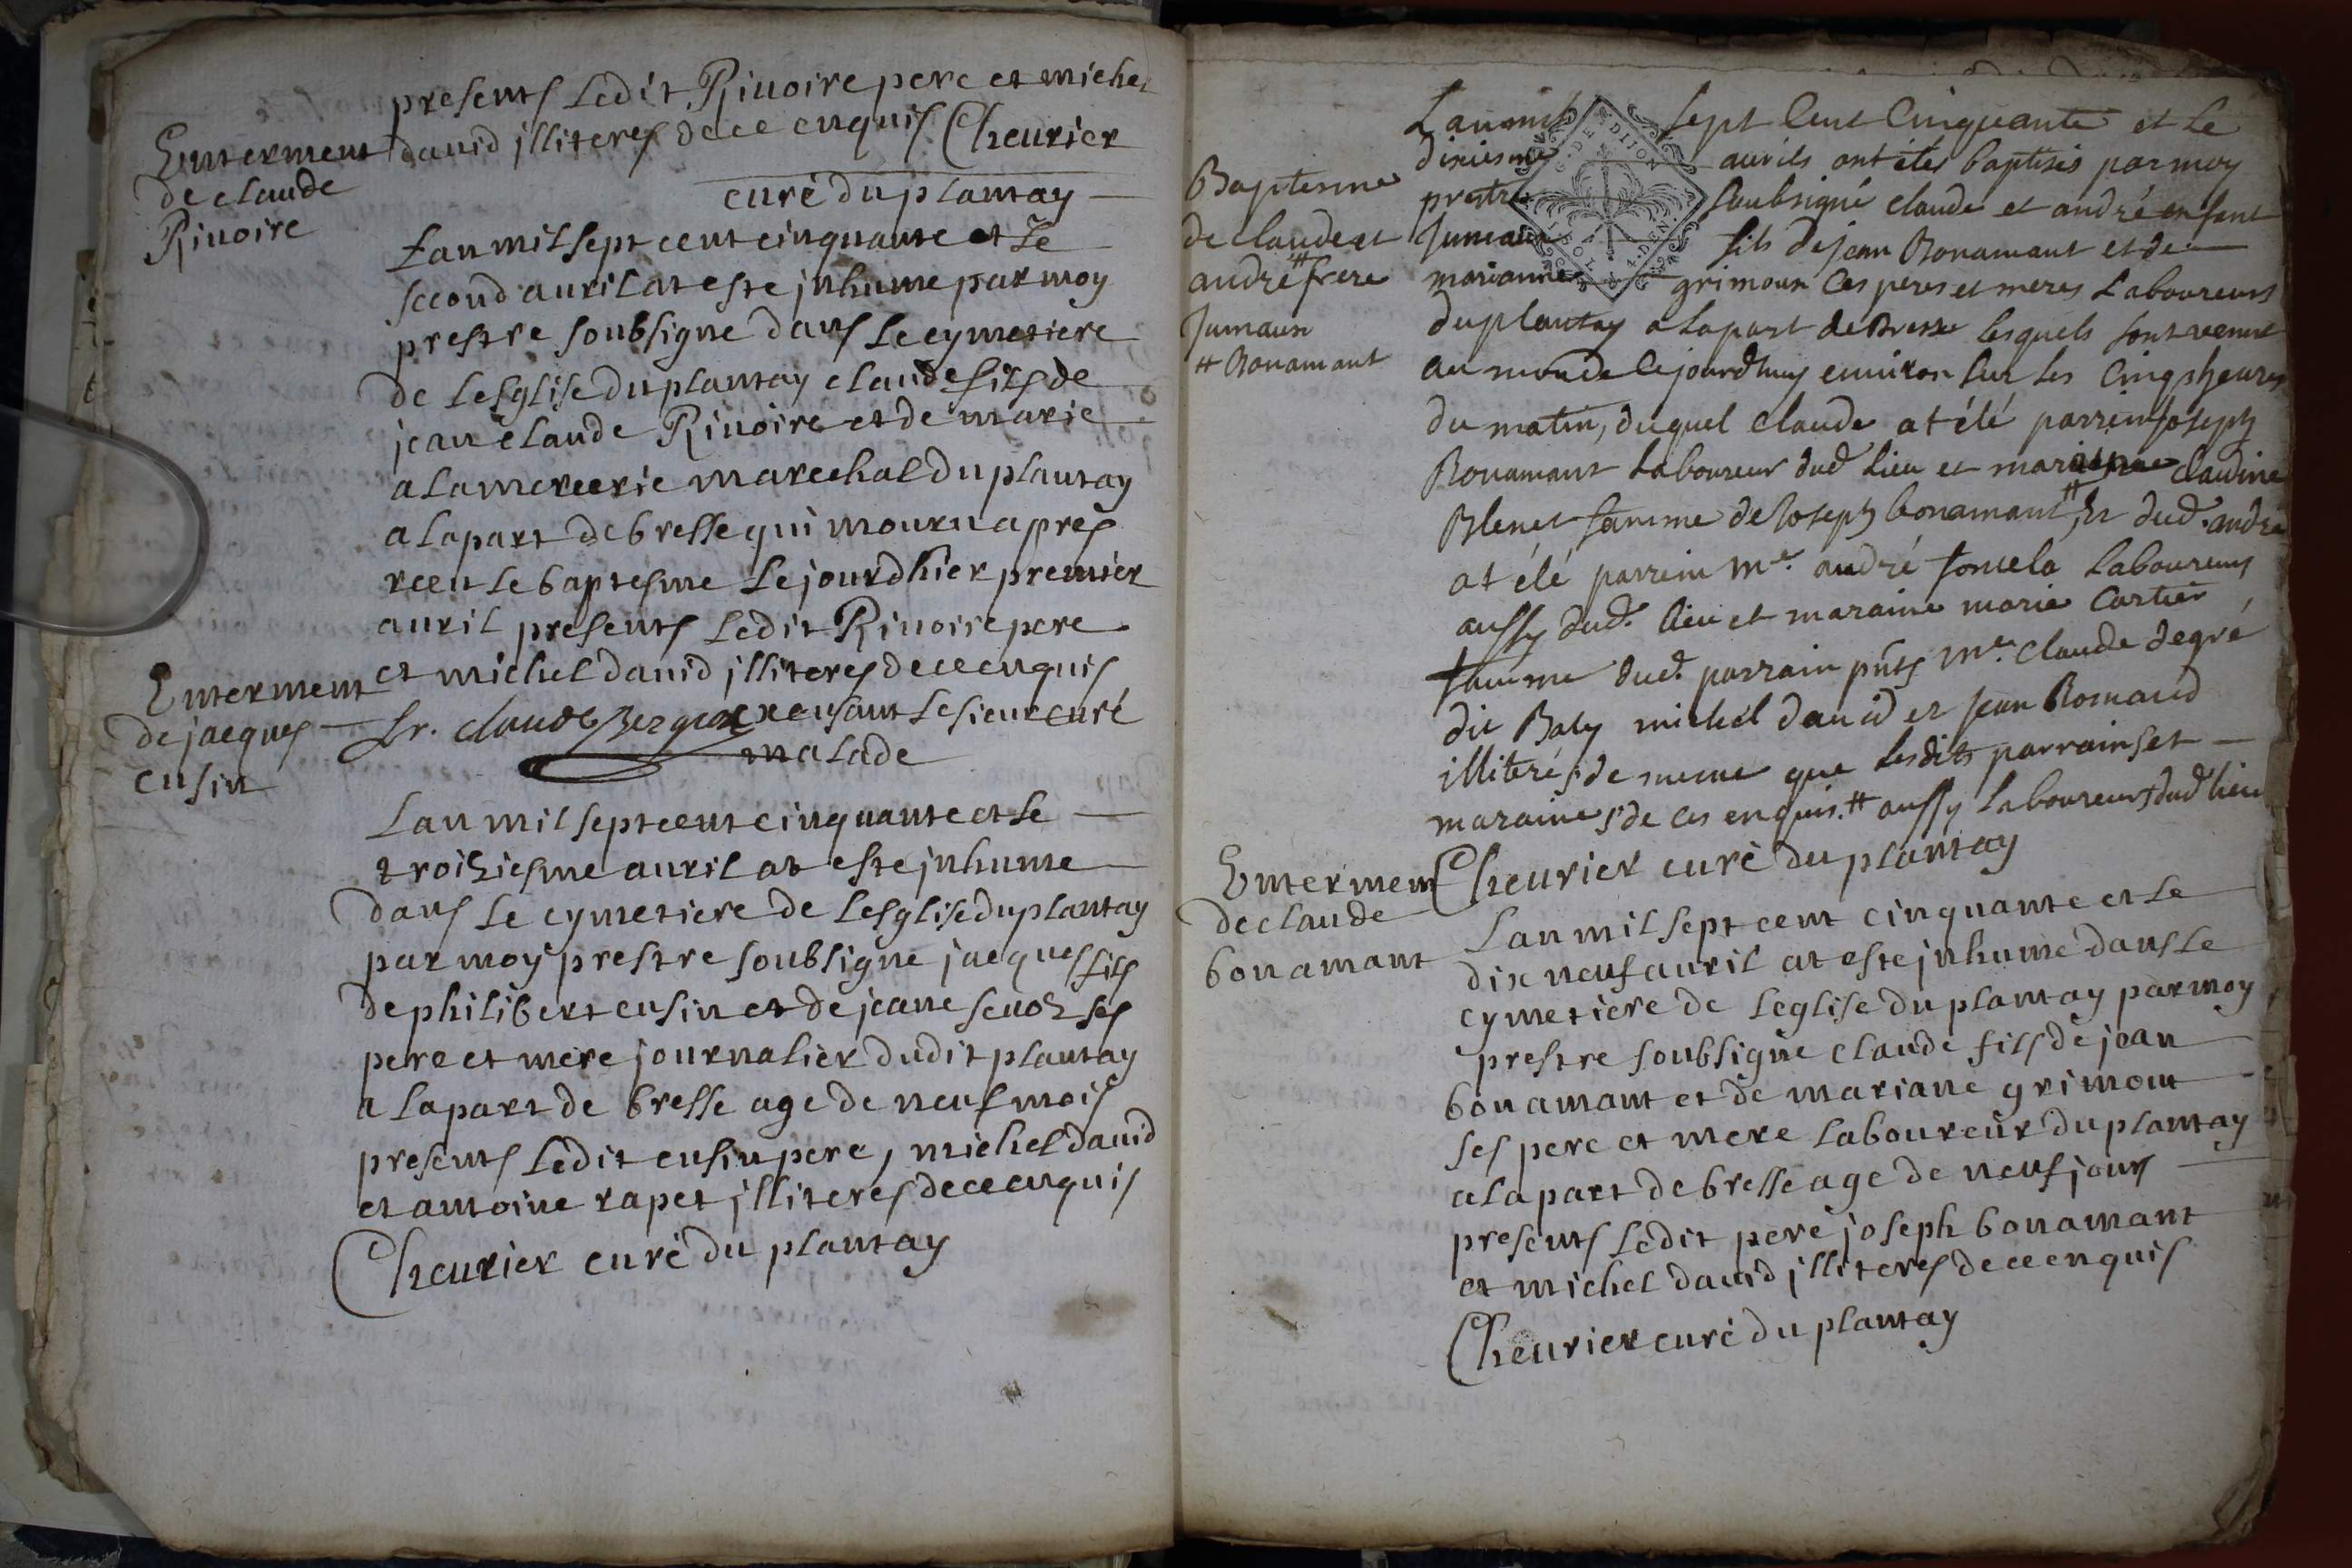 presents Ledit Rivoire pere et michel
david illiteres de ce enquis Cheurier
curé du plantay
Enterment
de claude
Rivoire
Lan mil sept cent cinquante et Le
second auril at este inhumé par moy
prestre soubsigné dans Le cymetiere
de Lesglise du plantay claude fils de
jean claude Rivoire et de marie
a la mercerie marechal du plantay
a la part de bresse qui mouru après
reeu le baptesme Le jourdhier premier
auril presents Ledit Rivoire pere
et michel david illiteres de ce enquis
fr. claude excusant Le sieur curé
malade
Enterment
de jacques
cusin
Lan mil sept cent cinquante et Le
troiziesme auril at este inhumé
dans Le cymetiere de Lesglise du plantay
par moy prestre soubsigné jacques fils
de philibert cusin et de jeane sevoz ses
pere et mere journalier dudit plantay
a La part de bresse age de neuf mois
presents Ledit cusin pere, michel david
et antoine rapet illiteres de ce enquis
Cheurier curé du plantay
Baptesme
de claude et
andré # frere
Jumaux
# Bonamant
L'an mil sept Cent Cinquante et Le
dixiesme auril ont étés baptisés par moy
prestre soubsigné claude et andré enfant
Jumaux fils de jean Bonamant et de
marianne grimoux Ces peres et meres Laboureurs
du plantay a La part de Bresse lesquels sont venut
au monde Cejourdhuy environ sur les Cinqs heures
du matin, duquel claude at élé parrein joseph
Bonamant Laboureur dud. Lieu et claudine
Blenet famme de Joseph bonamant #, Et dud. andré
at élé parrein me. andré foncela Laboureurs
aussy dud. lieu et maraine marie Cartier
famme dud. parrain pnts me. claude degré
dit Baly michel david et jean Romand
illiterés de meme que lesdits parrains et
maraines de ces enquis. # aussy laboureurs dud lieu
Cheurier curé du plantay
Enterment
de claude
bonamant
Lan mil sept cent cinquante et Le
dix neuf auril at este inhumé dans Le
cymetiere de Leglise du plantay par moy
prestre soubsigné claude fils de jean
bonamant et de mariane grimout
ses pere et mere Laboureur du plantay
a La part de bresse age de neuf jours
presents Ledit pere joseph bonamant
et michel david illiteres de ce enquis
Cheurier curé du plantay